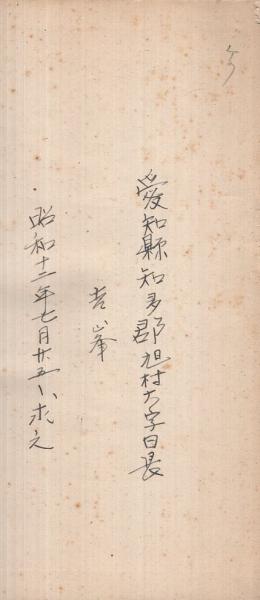 愛知縣知多郡旭村大字日長
吉峯
昭和十二年七月廿五日求之